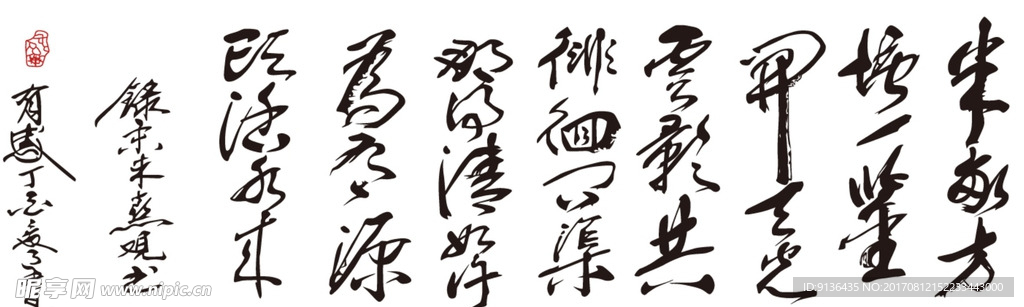 半畝方
塘一鑒
開天光
雲影共
徘徊问渠
那得清如许
為有源
頭活水来
録宋朱熹观书
有感丁
昵享网 www.nipic.cn
ID:9136435 NO:20170812152233443000